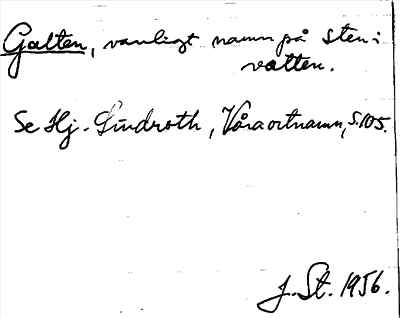 Galten, vanligt namn på sten i
vatten.
Se Hj. Lindroth, Våra ortnamn, s. 105.
J. St. 1956.